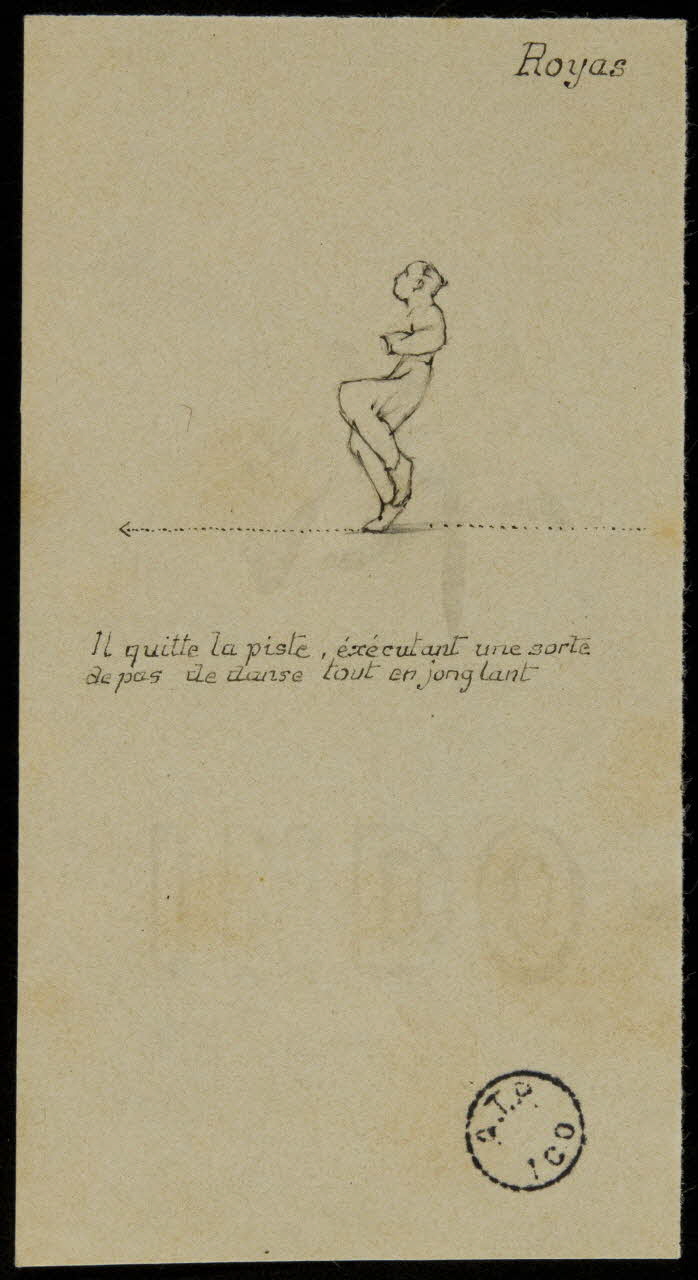 Royas
Il quitte la piste, éxécutant une sorte
de pas de danse tout en jonglant
A.T.P.